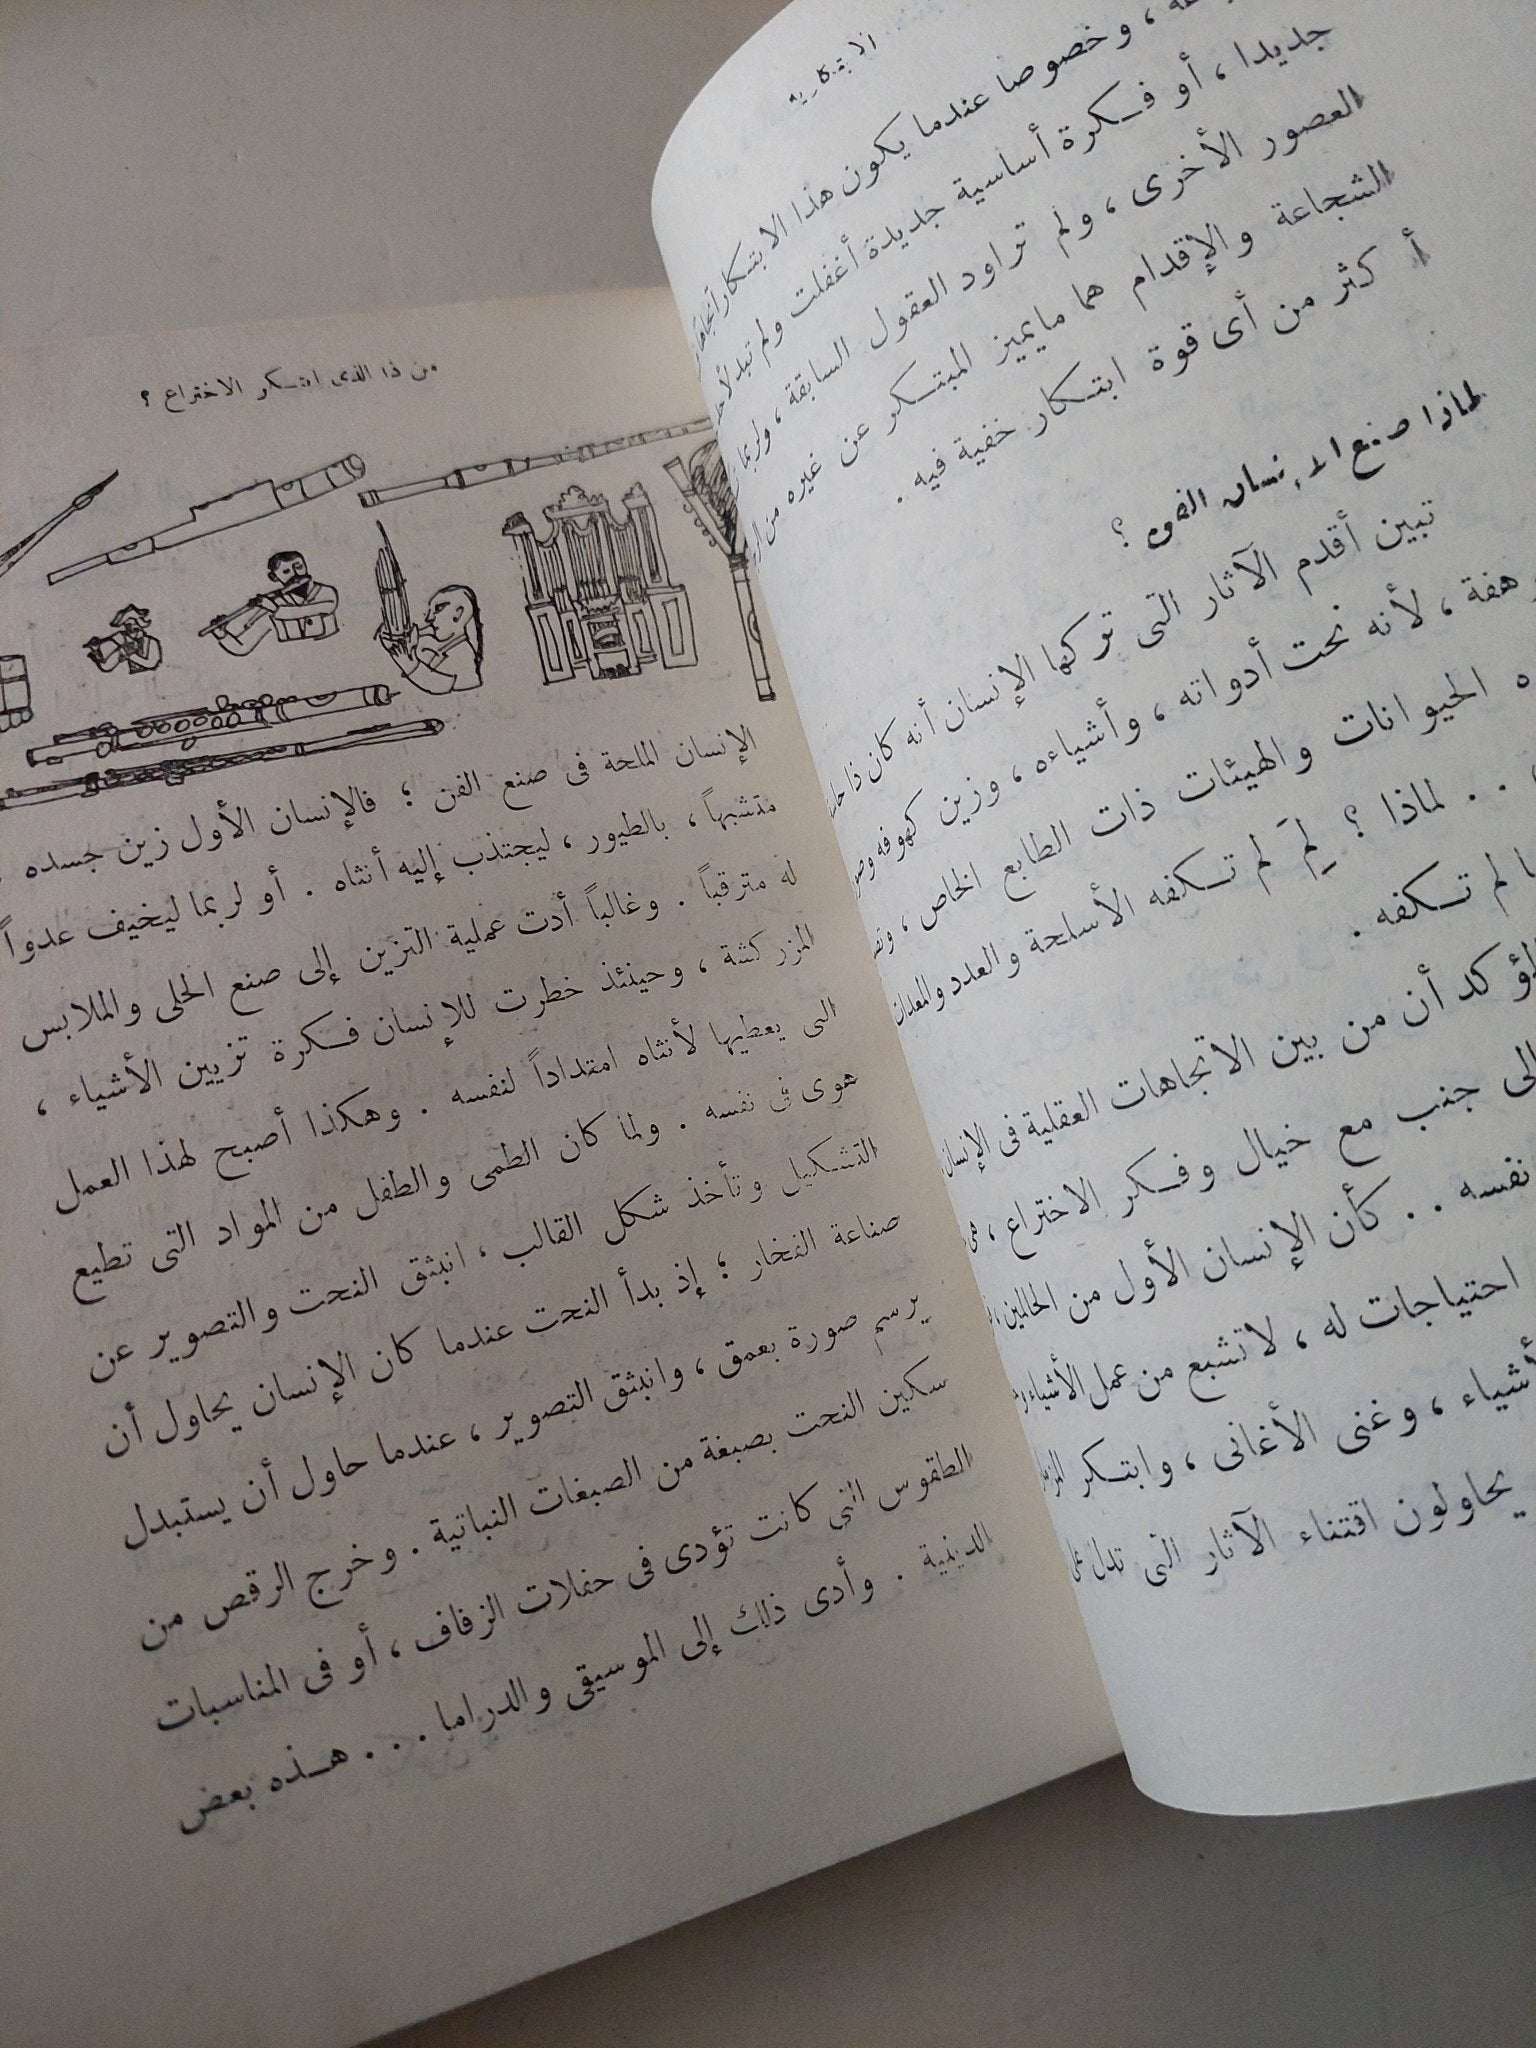 الابتكارية
، وخصوصا عندما يكون هذا الابتكار اتجاها
جديدا ، أو فكرة أساسية جديدة أغفلت ولم تبد لأحد
العصور الأخرى ، ولم تراود العقول السابقة ، ولربما
الشجاعة والإقدام هما مايميز المبتكر عن غيره من
أكثر من أى قوة ابتكار خفية فيه .
لماذا صنع الإنسان الفن ؟
تبين أقدم الآثار التى تركها الإنسان أنه كان ذا
هفة ، لأنه نحت أدواته ، وأشياءه ، وزين كهوفه
ه الحيوانات والهيئات ذات الطابع الخاص ،
. . لماذا ؟ لِمَ لم تكفه الأسلحة والعدد والمعدات
لم تكفه .
أن من بين الاتجاهات العقلية فى الإنسان
جنب مع خيال وفكر الاختراع ،
نفسه . . كأن الإنسان الأول من الحالمين
احتياجات له ، لاتشبع من عمل الأشياء
، وغنى الأغانى ، وابتكر
يحاولون اقتناء الآثار التى تدل على
من ذا الذى ابتكر الاختراع ؟
الإنسان الملحة فى صنع الفن ؛ فالإنسان الأول زين جسده
متشبهاً ، بالطيور ، ليجتذب إليه أنثاه . أو لربما ليخيف عدواً
له مترقباً . وغالباً أدت عملية التزين إلى صنع الحلى والملابس
المزركشة ، وحينئذ خطرت للإنسان فكرة تزيين الأشياء ،
التى يعطيها لأنثاه امتداداً لنفسه . وهكذا أصبح لهذا العمل
هوى فى نفسه . ولما كان الطمى والطفل من المواد التى تطيع
التشكيل وتأخذ شكل القالب ، انبثق النحت والتصوير عن
صناعة الفخار ؛ إذ بدأ النحت عندما كان الإنسان يحاول أن
يرسم صورة بعمق ، وانبثق التصوير ، عندما حاول أن يستبدل
سكين النحت بصبغة من الصبغات النباتية . وخرج الرقص من
الطقوس التى كانت تؤدى فى حفلات الزفاف ، أو فى المناسبات
الدينية . وأدى ذلك إلى الموسيقى والدراما . . . هذه بعض